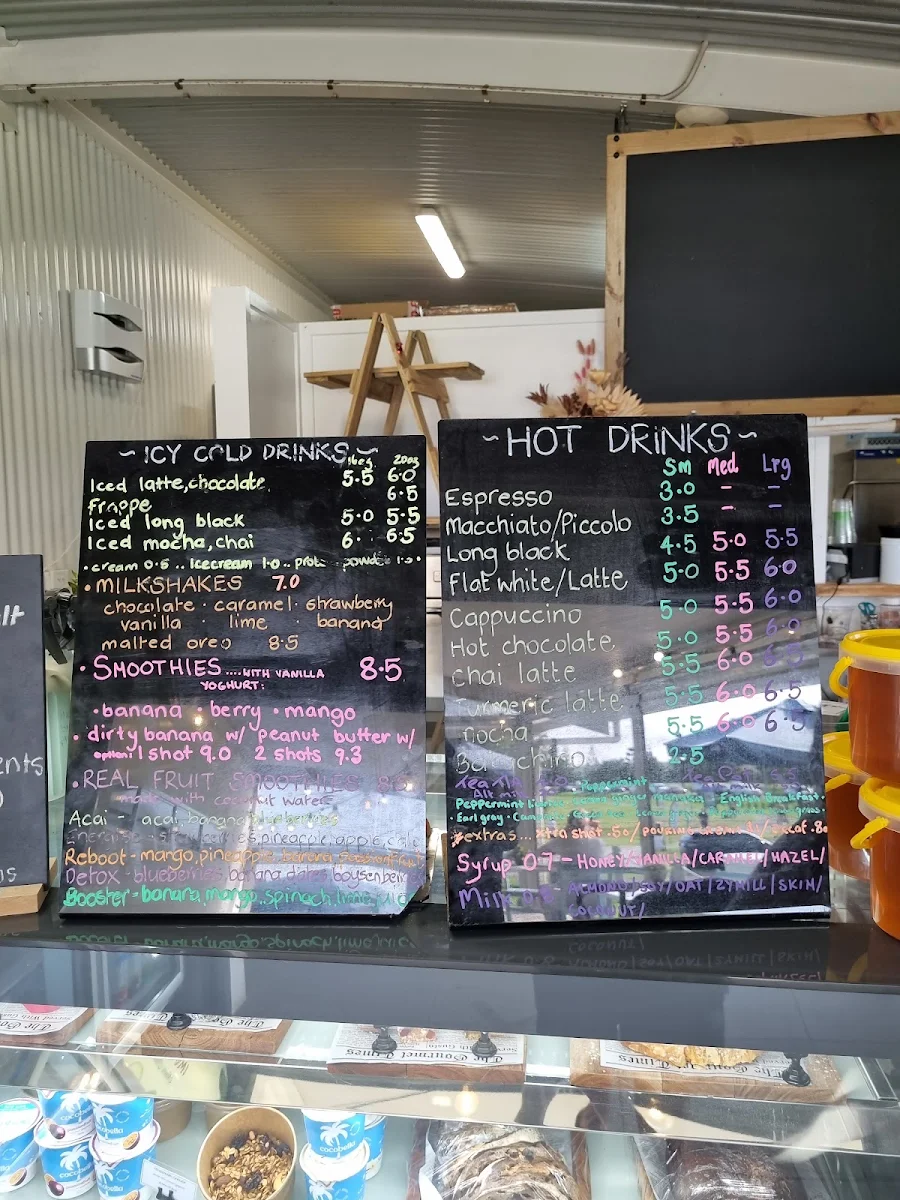 ~ ICY COLD DRINKS ~
20oz
Iced latte, chocolate 5.5 6.0
Frappe 6.5
Iced long black 5.0 5.5
Iced mocha, chai 6. 6.5
• cream 0.5 .. Icecream 1.0 .. prot powder
• MILKSHAKES 7.0
chocolate • caramel • strawberry
vanilla • lime • banana
malted oreo 8.5
• SMOOTHIES .... WITH VANILLA 8.5
YOGHURT:
• banana • berry • mango
• dirty banana w/ peanut butter w/
option: 1 shot 9.0 2 shots 9.3
• REAL FRUIT SMOOTHIES
made with coconut water
Acai - acai, banana, blueberries
Reboot - mango, pineapple, banana,
Detox - blueberries, banana, dates, boysenberries
Booster - banana, mango, spinach, lime, juice
~ HOT DRINKS ~
Sm Med Lrg
Espresso 3.0 - -
Macchiato/Piccolo 3.5 - -
Long black 4.5 5.0 5.5
Flat white/Latte 5.0 5.5 6.0
Cappuccino 5.0 5.5 6.0
Hot chocolate 5.0 5.5 6.0
Chai latte 5.5 6.0 6.5
Turmeric latte 5.5 6.0 6.5
mocha 5.5 6.0 6.5
Babychino 2.5
Peppermint
Peppermint ginger English Breakfast •
• Earl gray •
extras... xtra shot .50/ pouring cream
Syrup 0.7 - HONEY/VANILLA/CARAMEL/HAZEL/
Milk 0.8 - ALMOND/SOY/OAT/ZYMILL/SKIM/
coconut/
ents
The Gourmet Times
The Gourmet Times
cocobella
cocobella
cocobella